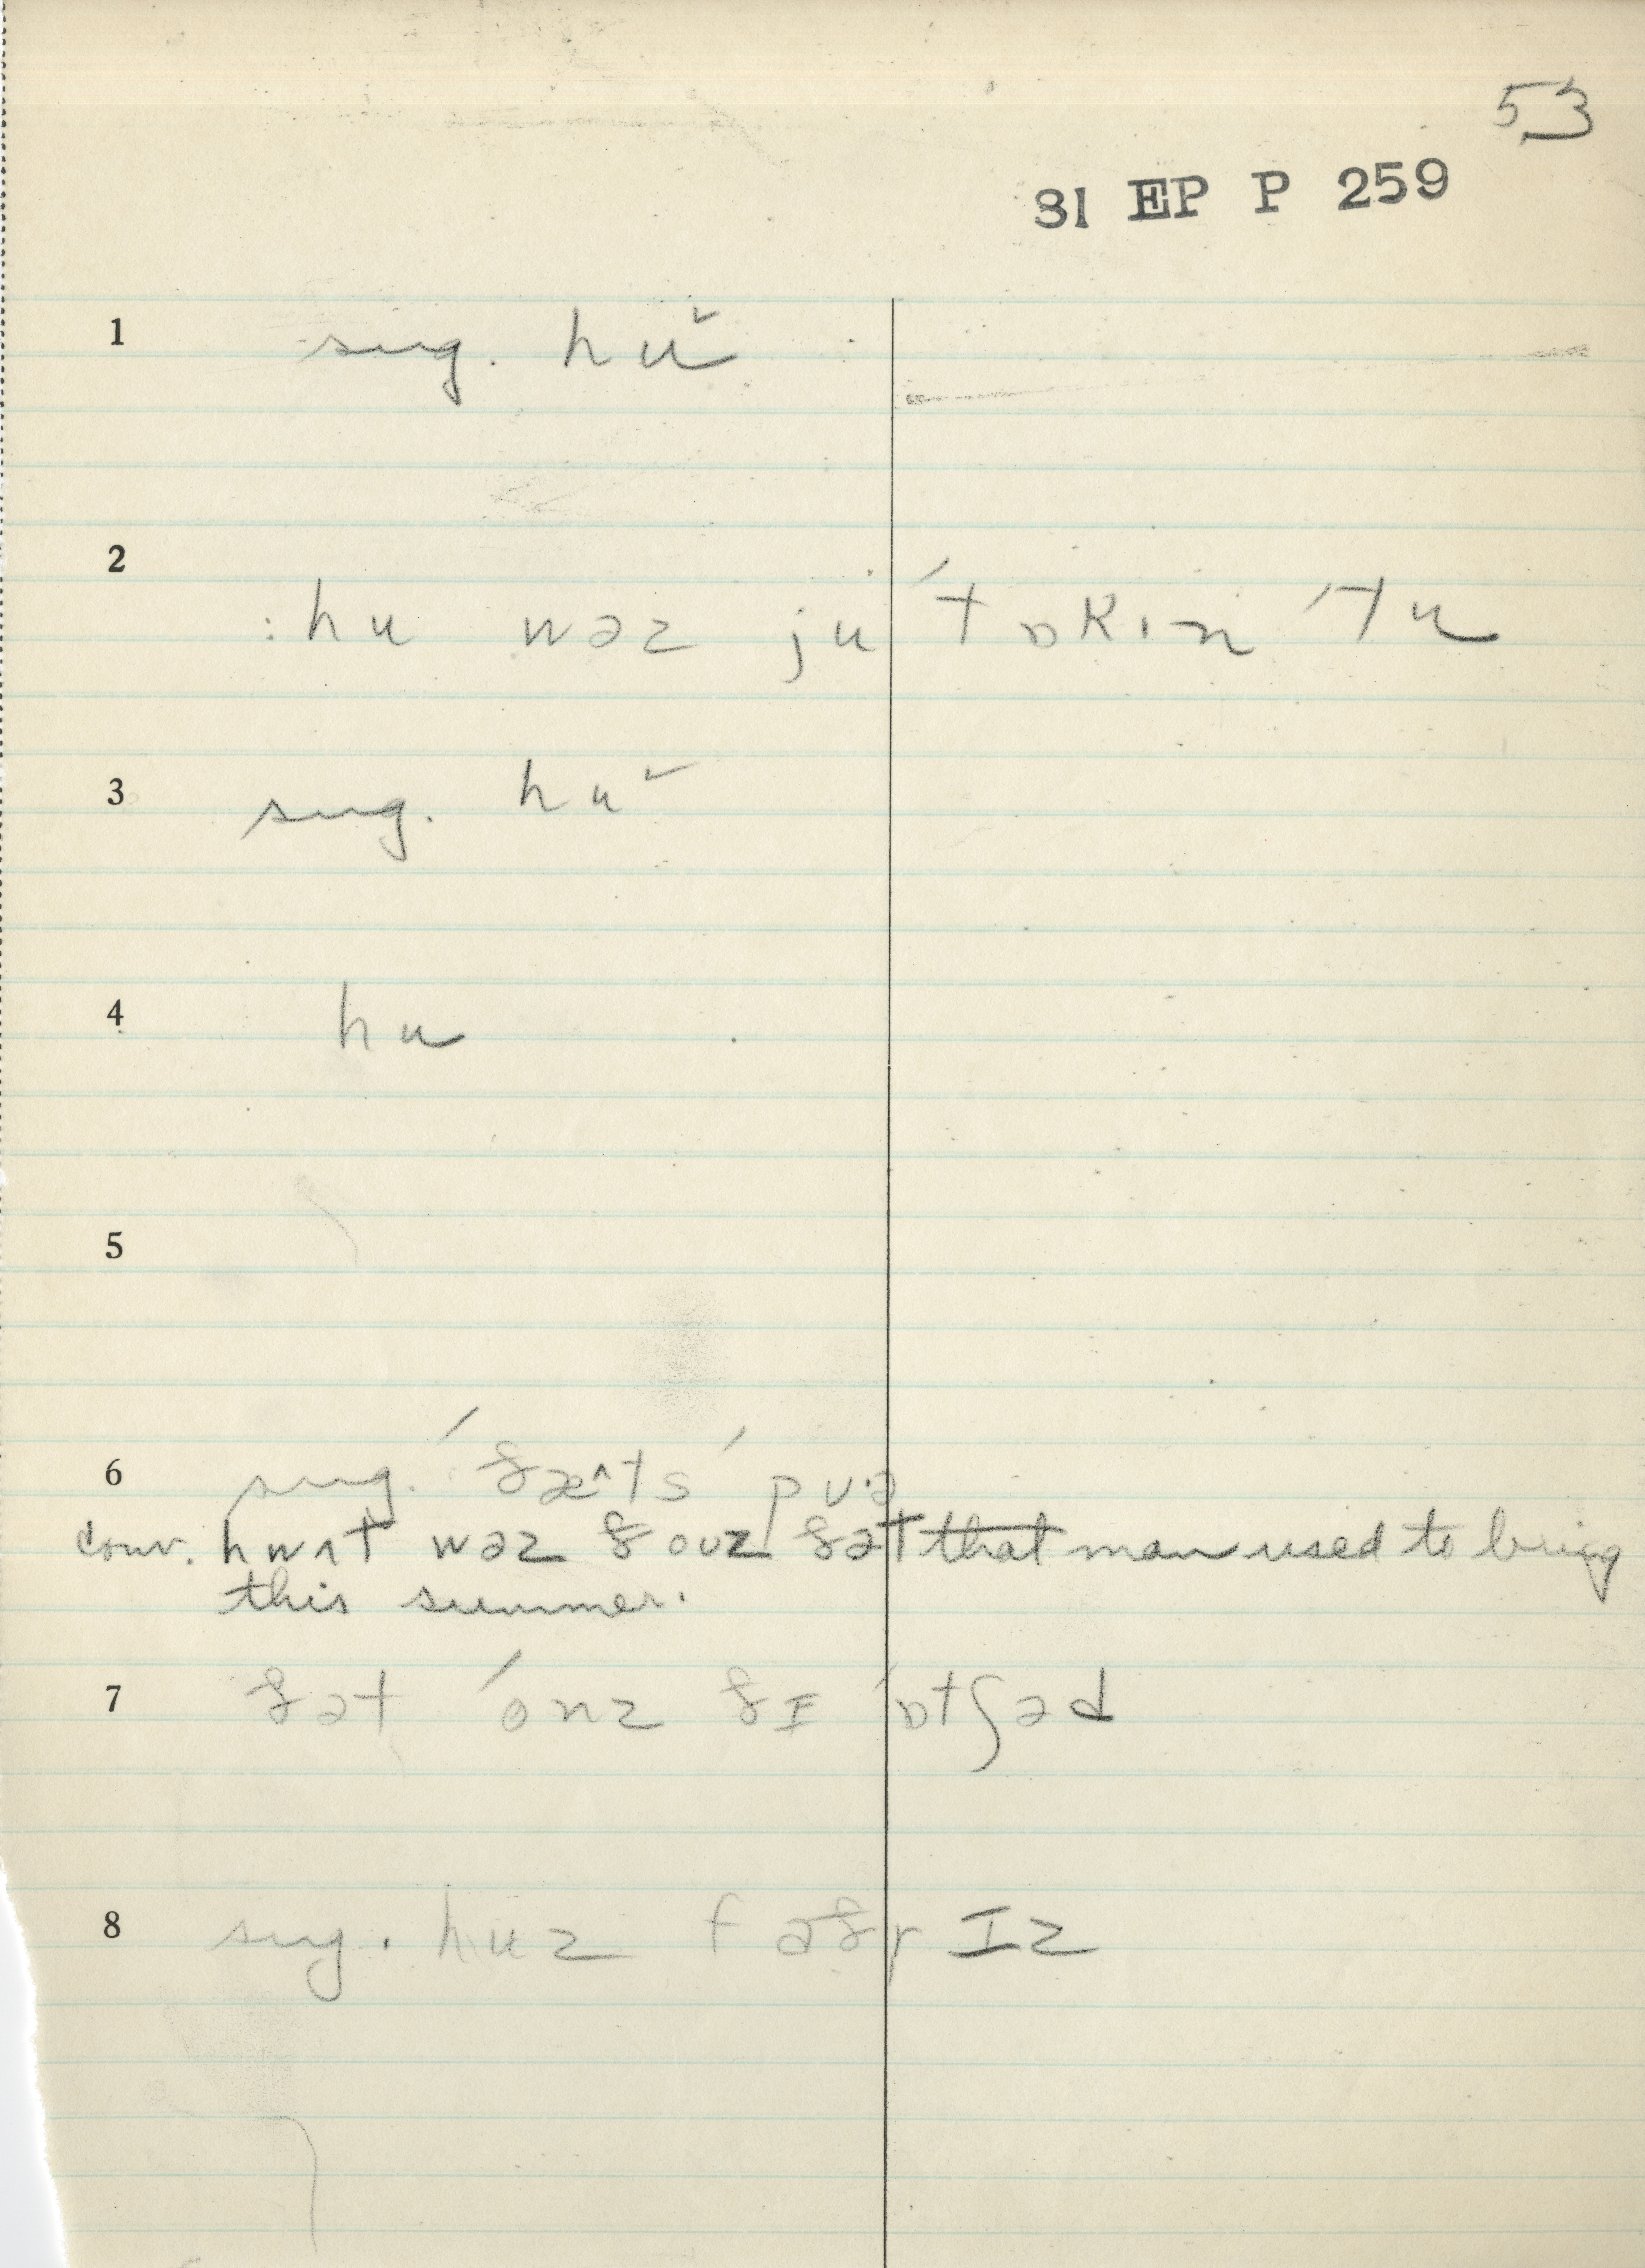 53
31 EP P 259
1 sug. hu˅
2 : hu wəz ju ˈtɒkɪn ˈtu
3 sug. hu˅
4 hu
5
6 sug. ˈðæ^ts ˈpʊ·ə
conv. hwʌt wəz ðouz ðət ~~that~~ man used to bring
this summer.
7 ðət ˈonz ðɪ ˈɒtʃəd
8 sug. huz fɑðr ɪz